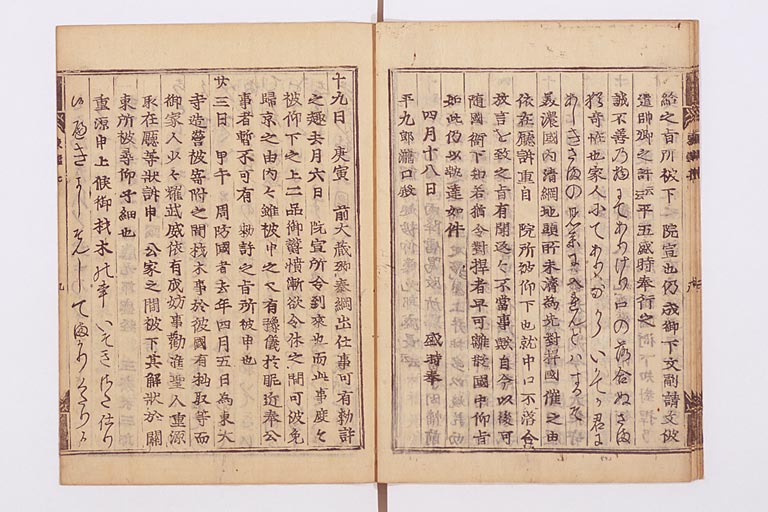 給之旨所被下 院宣也仍成御下文副請文被
遣帥卿之許云云平五盛時奉行之
誠不善乃にてありけり口の落合ぬさ海
猶奇怪也家人にてありなからいかてか君に
あしきさまの見参に
美濃國内渚網地頭所未濟為先對捍國催之由
依在廳訴重自 院所被仰下也就中口不落合
放言を致之旨有聞返々不當事歟自今以後可
隨國衙下知若猶令對捍者早可離散國中仰旨
如此仍以執達如件
四月十八日 盛時奉
平九郎瀧口殿
十九日 庚寅 前大蔵卿泰綱出仕事可有勅許
之趣去月六日 院宣所令到來也而此事度々
被仰下之上二品御欝憤漸欲令休之間可被免
歸京之由内々雖被申之又有豫儀於昵近奉公
事者暫不可有 勅許之旨所被申也
廿三日 甲午 周防國者去年四月五日為東大
寺造營被寄附之間材木事於彼國有抅取等而
御家人少々耀武威依有成妨事勧進聖人重源
取在廳等状訴申 公家之間被下其解状於關
東所被尋仰子細也
重源申上候御材木能事いそきさた仕り